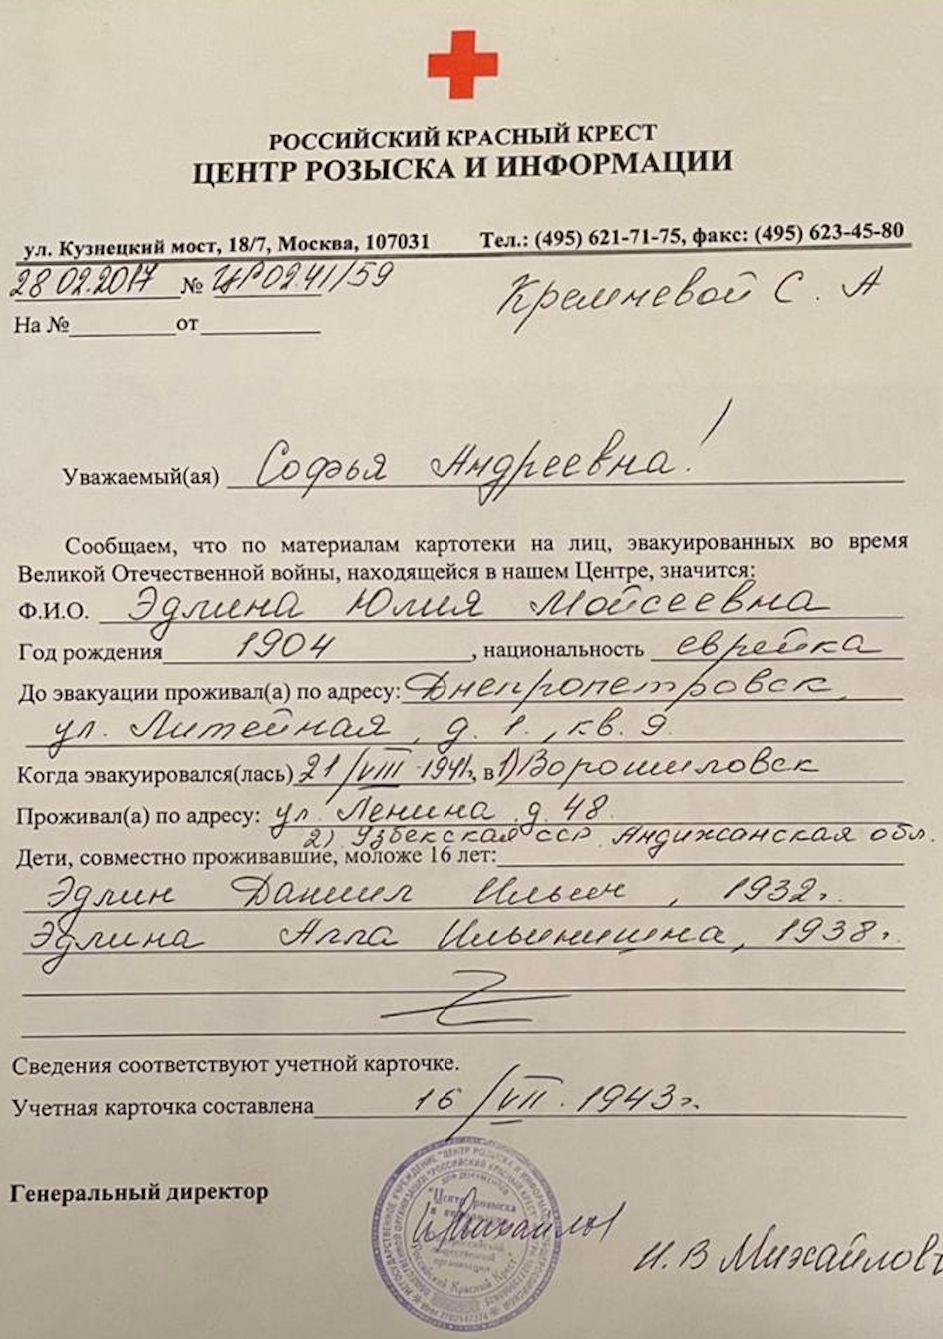 РОССИЙСКИЙ КРАСНЫЙ КРЕСТ
ЦЕНТР РОЗЫСКА И ИНФОРМАЦИИ
ул. Кузнецкий мост, 18/7, Москва, 107031 Тел.: (495) 621-71-75, факс: (495) 623-45-80
28 02.2017 № ЦР02.41/159
Кремневой С. А
На №________от__________
Уважаемый(ая) Софья Андреевна!
Сообщаем, что по материалам картотеки на лиц, эвакуированных во время
Великой Отечественной войны, находящейся в нашем Центре, значится:
Ф.И.О. Эдлина Юлия Мойсеевна
Год рождения 1904, национальность еврейка
До эвакуации проживал(а) по адресу: Днепропетровск,
ул. Литейная, д. 1., кв. 9.
Когда эвакуировался(лась) 21/VIII 1941, в 1) Ворошиловск
Проживал(а) по адресу: ул. Ленина д. 48.
2) Узбекская ССР. Андижанская обл.
Дети, совместно проживавшие, моложе 16 лет:
Эдлин Даниил Ильич, 1932г.
Эдлина Алла Ильинишна, 1938г.
Сведения соответствуют учетной карточке.
Учетная карточка составлена 16/VII. 1943г.
Генеральный директор
"Центр розыска
Российский Красный Крест"
И. В Михайлов